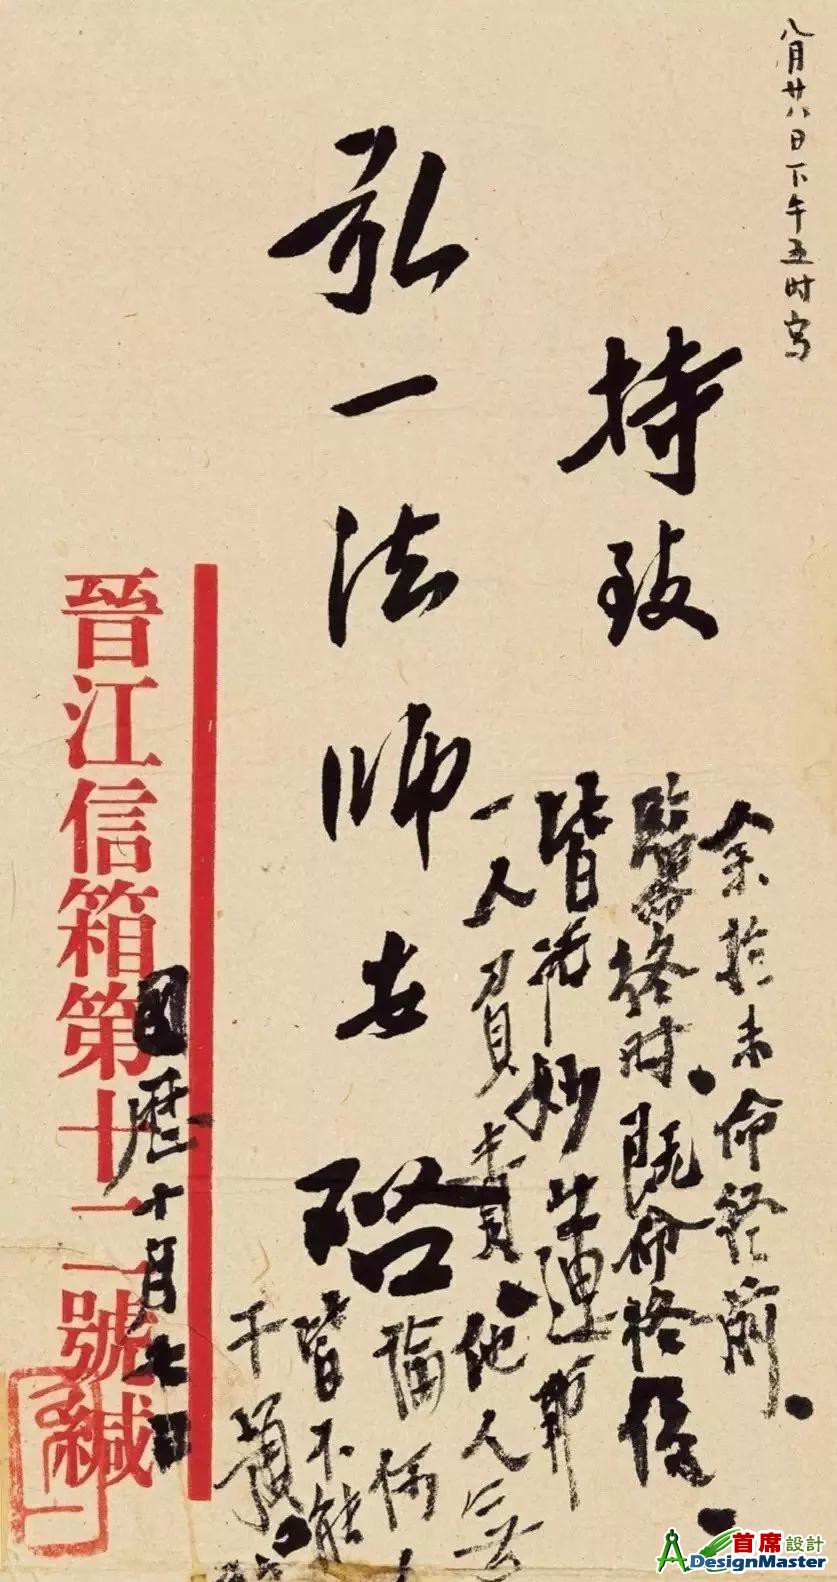 八月廿八日下午五时写
持致
弘一法师安启
余於未命终前
临命终时既命终后
皆托妙莲师
一人负责他人无
论何人
皆不能
干预
国历十月七日
晋江信箱第十二號緘
弘一
首席設計
DesignMaster